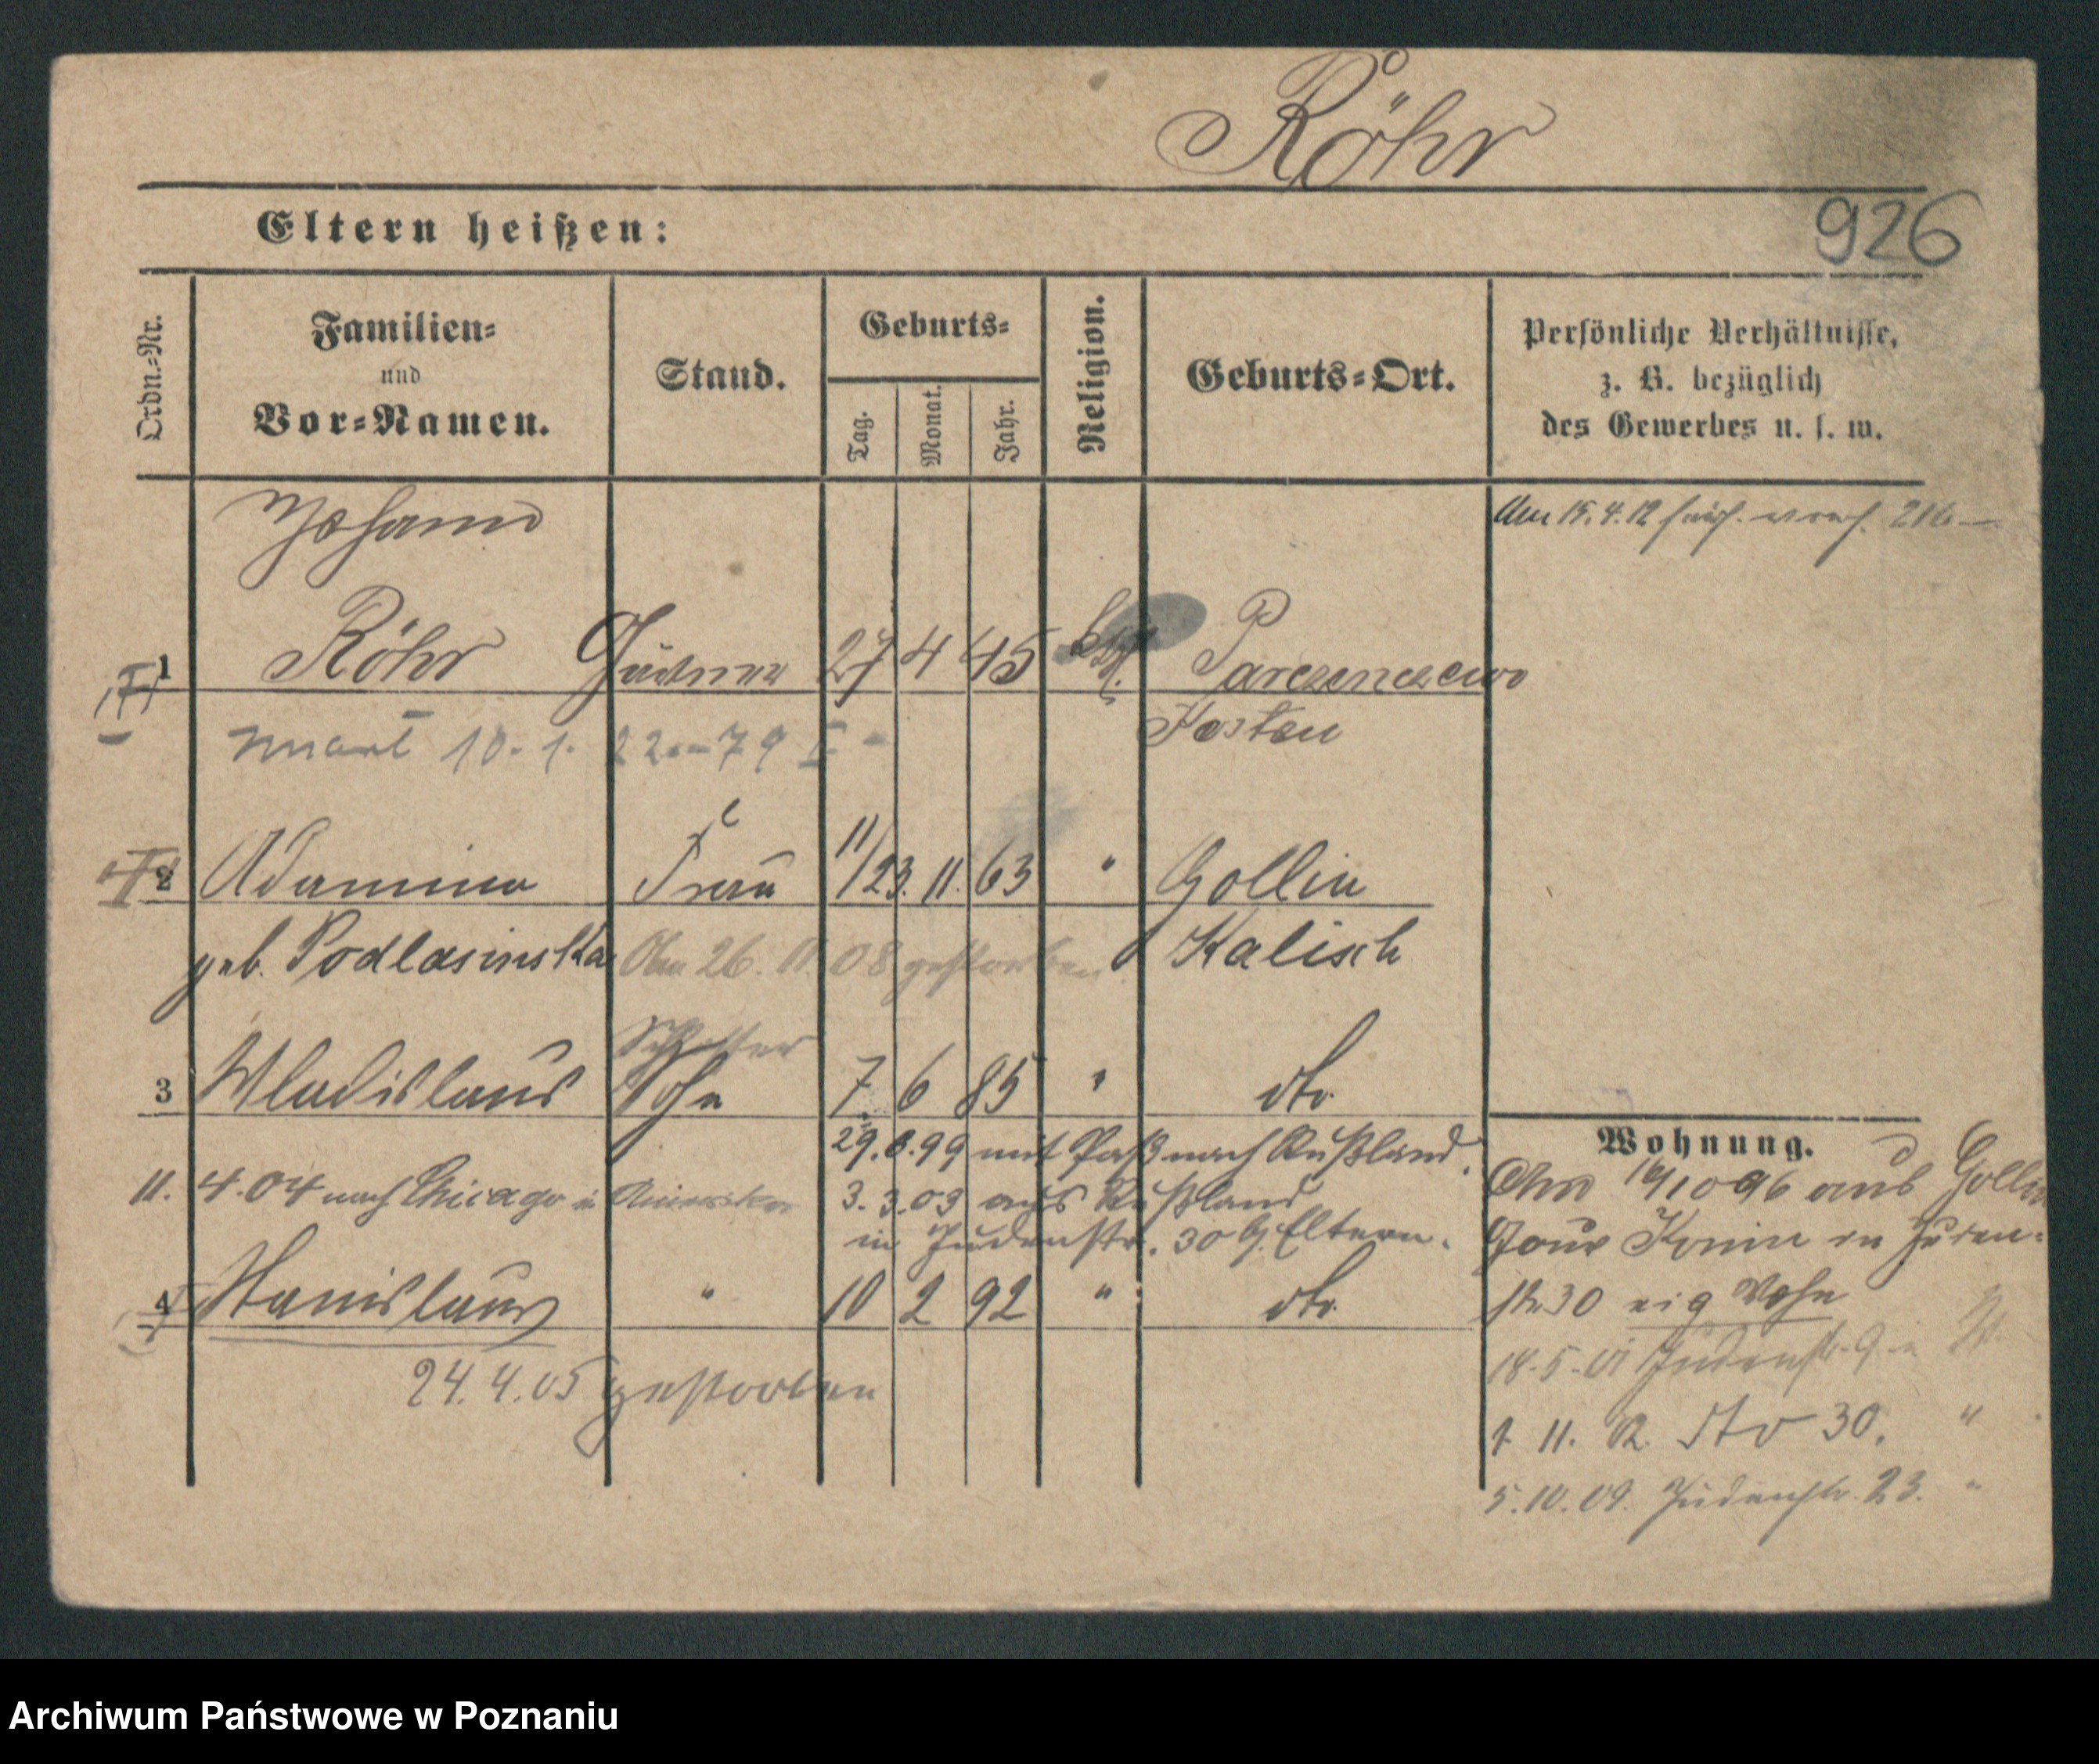 Röhr
926
Eltern heißen:
Ordn.-Nr.
Familien-
und
Vor-Namen.
Stand.
Geburts-
Tag.
Monat.
Jahr.
Religion.
Geburts-Ort.
Persönliche Verhältnisse,
z. B. bezüglich
des Gewerbes u. s. w.
Johann
Am 15.4.12
1 Röhr 27 4 45 Parczenczewo
10. 1. 79 Kosten
2 Adamina Frau 11/23. 11. 63 " Gollin
geb. Podlasinska Am 26. 11. 08 gestorben Kalisch
3 Wladislaus Sohn 7 6 85 " dto.
29. 8. 99 mit Paß nach Rußland.
11. 4. 04 nach Chicago in Amerika 3. 3. 03 aus Rußland
in Judenstr. 30 b. Eltern.
4 Stanislaus " 10 2 92 " dto.
24. 4. 05 gestorben
Wohnung.
aus Gollin
Gouv Konin in Juden-
str 30 eig Wohn
18. 5. 01 Judenstr. 9
1. 11. 02. dto 30. "
5. 10. 09. Judenstr. 23. "
Archiwum Państwowe w Poznaniu